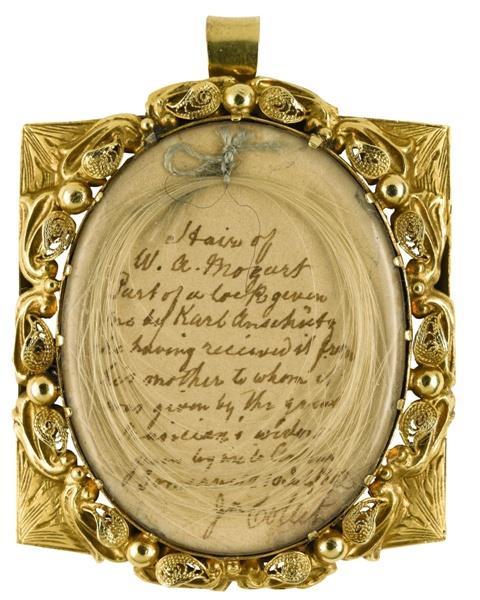 Hair of
W. A. Mozart
Part of a lock given
me by Karl Anschütz
he having received it from
his mother to whom it
was given by the great
musician's widow
given by me to